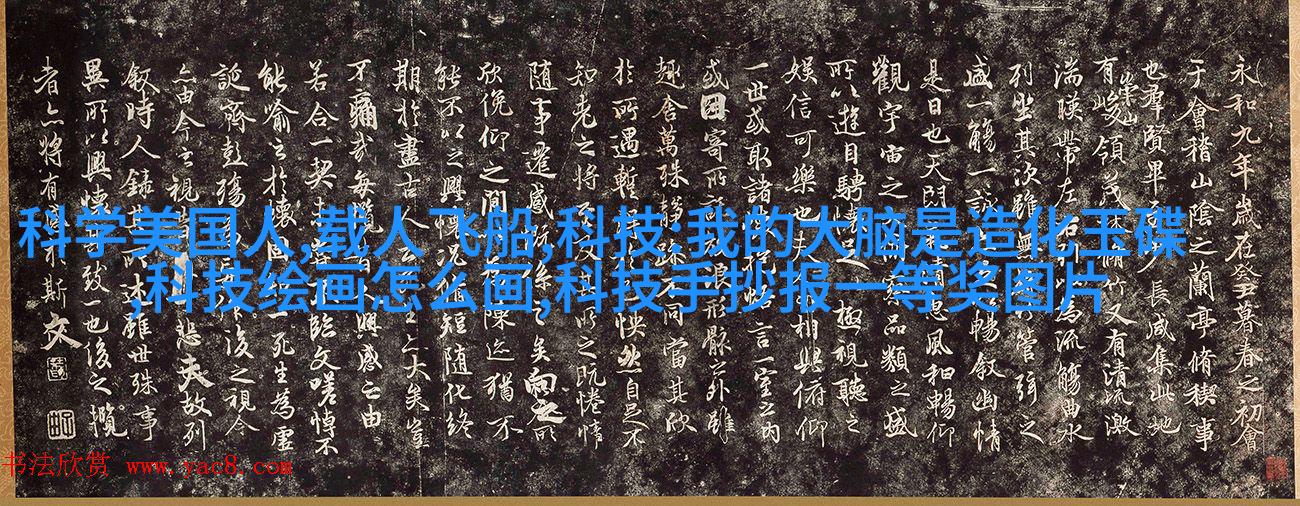 科学美国人,载人飞船,科技:我的大脑是造化玉碟
,科技绘画怎么画,科技手抄报一等奖图片
永和九年歲在癸丑暮春之初會
于會稽山陰之蘭亭脩稧事
也羣賢畢至少長咸集此地
有崇山峻領茂林脩竹又有清流激
湍暎帶左右引以為流觴曲水
列坐其次雖無管弦之
盛一觴一詠暢敘幽情
是日也天朗清惠風和暢仰
觀宇宙之品類之盛
所以遊目騁懷足極視聽之
娛信可樂也夫相與俯仰
一世或取諸抱悟言一室之內
或因寄所浪形骸之外雖
趣舍萬殊靜躁不同當其欣
於所遇暫怏然自足不
知老之將至及所之既惓情
隨事遷感慨係之矣向之所
欣俛仰之間陳迹猶不
能不以之興懷況脩短隨化終
期於盡古人云大矣豈
不痛哉每攬昔興感之由
若合一契未臨文嗟悼不
能喻之於懷固一死生為虛
誕齊彭殤後之視今
亦由今之視悲夫故列
敘時人錄其述雖世殊事
異所以興懷其致一也後之攬
者亦將有於斯文
书法欣赏 www.yac8.com